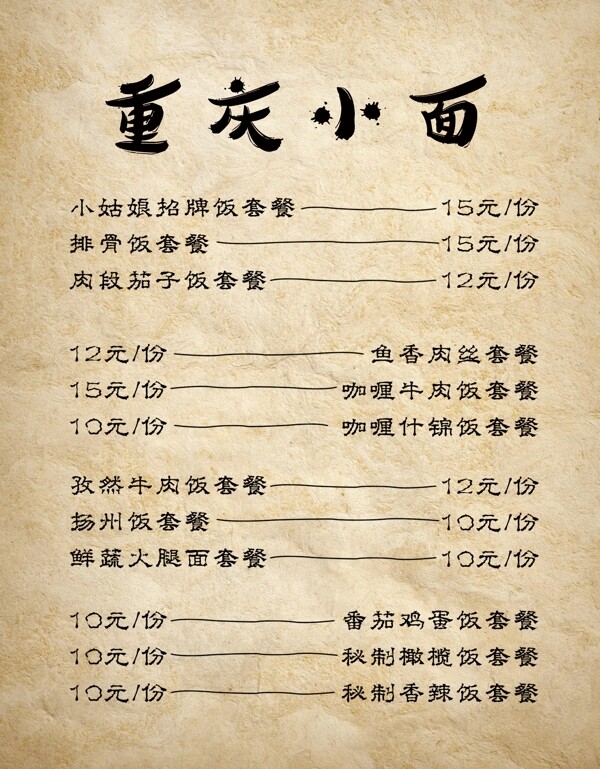 重庆小面
小姑娘招牌饭套餐 15元/份
排骨饭套餐 15元/份
肉段茄子饭套餐 12元/份
12元/份 鱼香肉丝套餐
15元/份 咖喱牛肉饭套餐
10元/份 咖喱什锦饭套餐
孜然牛肉饭套餐 12元/份
扬州饭套餐 10元/份
鲜蔬火腿面套餐 10元/份
10元/份 番茄鸡蛋饭套餐
10元/份 秘制橄榄饭套餐
10元/份 秘制香辣饭套餐